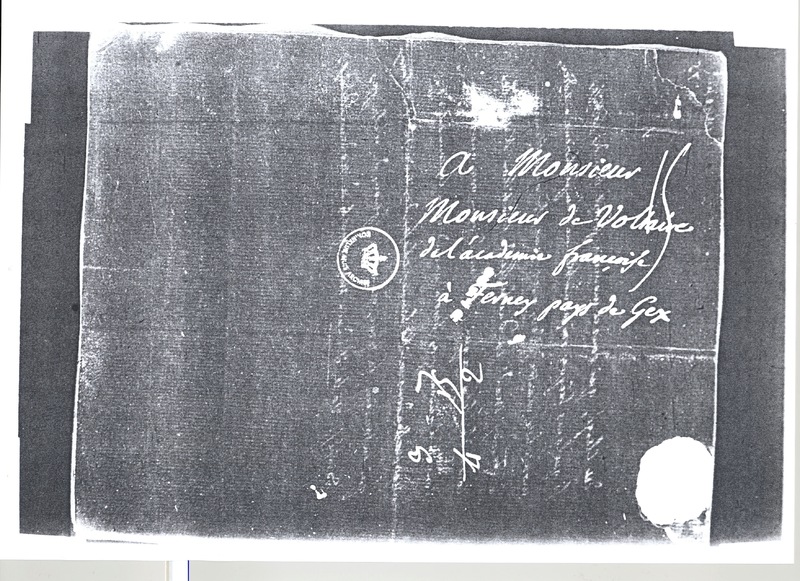 A Monsieur
Monsieur de Voltaire
de l'académie françoise
à Ferney pays de Gex